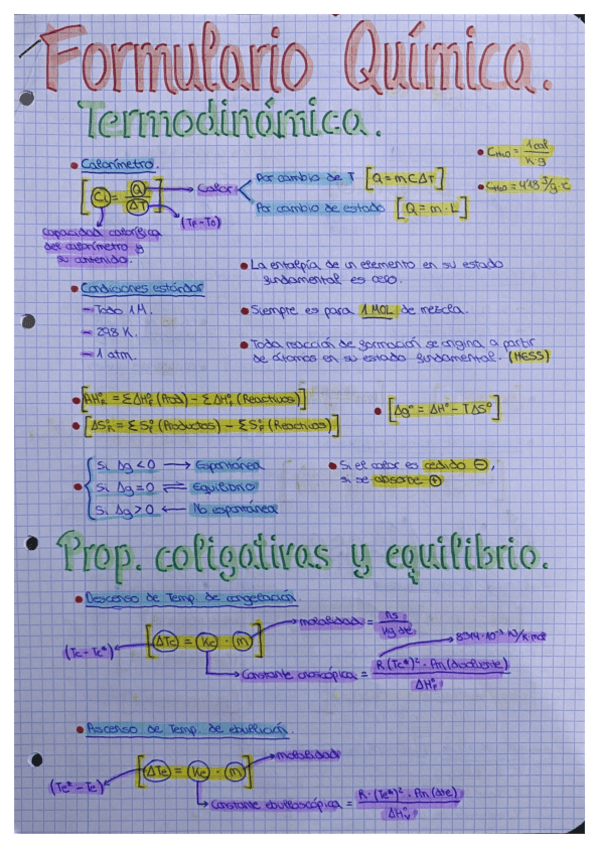 Formulario Química.
Termodinámica.
• Calorímetro.
[C = Q / ΔT]
Calor
Por cambio de T [Q = m C ΔT]
Por cambio de estado [Q = m · L]
(TF - T0)
Capacidad calorífica
del calorímetro y
su contenido.
• CH2O = 1cal / K·g
• CH2O = 4'18 J/g·c
• Condiciones estándar
- Todo 1M.
- 298 K.
- 1 atm.
• La entalpía de un elemento en su estado
fundamental es cero.
• Siempre es para 1 MOL de mezcla.
• Toda reacción de formación se origina a partir
de átomos en su estado fundamental. (HESS)
• [ΔH°R = Σ ΔH°F (Prod) - Σ ΔH°F (Reactivos)]
• [ΔS°R = Σ S°F (Productos) - Σ S°F (Reactivos)]
• [Δg° = ΔH° - TΔS°]
• Si Δg < 0 → Espontánea
Si Δg = 0 ⇌ Equilibrio
Si Δg > 0 ← No espontánea
• Si el calor es cedido ⊖,
si se absorbe ⊕
Prop. coligativas y equilibrio.
• Descenso de Temp. de congelación
[ΔTc = Kc · m]
(Tc - Tc*)
molalidad = ns / kg dte.
Constante crioscópica = R·(Tc*)² · Pm (disolvente) / ΔH°F
8'314·10⁻³ KJ/K·mol
• Ascenso de Temp. de ebullición.
[ΔTe = Ke · m]
(Te* - Te)
molalidad
Constante ebulloscópica = R · (Te*)² · Pm (dte) / ΔH°V